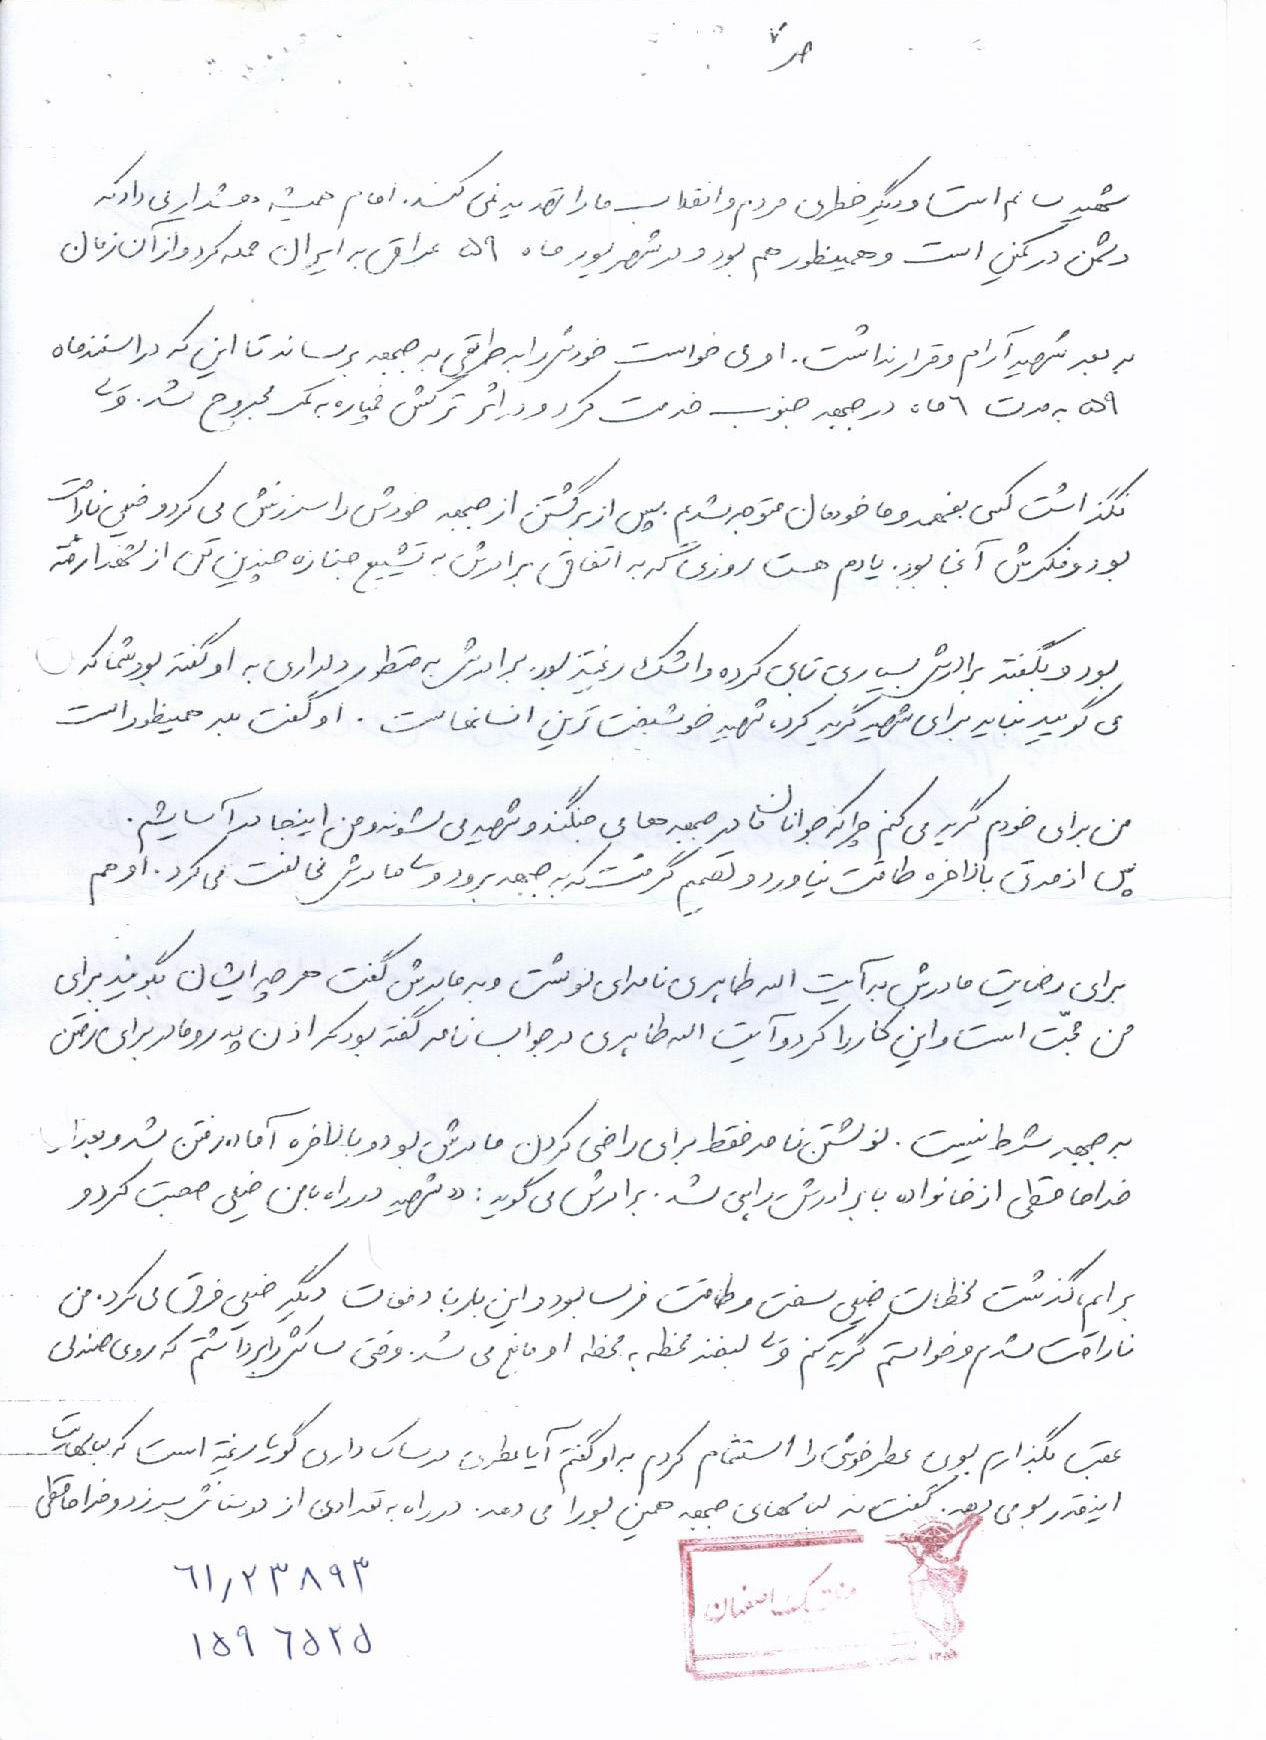 ص ۷
شهید سالم است و دیگر خطری مردم و انقلاب ما را تهدید نمی کند. امام همیشه هشدار می داد که
دشمن در کمین است و همینطور هم بود و در شهریور ماه ۵۹ عراق به ایران حمله کرد و از آن زمان
به بعد شهید آرام و قرار نداشت. او می خواست خودش را به طریقی به جبهه برساند تا این که در اسفندماه
۵۹ به مدت ۶ ماه در جبهه جنوب خدمت کرد و در اثر ترکش خمپاره به کمر مجروح شد. ولی
نگذاشت کسی بفهمد و ما خودمان متوجه شدیم. پس از برگشتن از جبهه خودش را سرزنش می کرد و خیلی ناراحت
بود و فکرش آنجا بود. یادم هست روزی که به اتفاق برادرش به تشییع جنازه چندین تن از شهدا رفته
بود و بگفته برادرش بسیار بی تابی کرده و اشک ریخته بود. برادرش به منظور دلداری به او گفته بود شما که
می گویید نباید برای شهید گریه کرد، شهید خوشبخت ترین انسانهاست. او گفت بله همینطور است
من برای خودم گریه می کنم چرا که جوانان ما در جبهه ها می جنگند و شهید می شوند و من اینجا در آسایشم.
پس از مدتی بالاخره طاقت نیاورد و تصمیم گرفت که به جبهه برود ولی مادرش مخالفت می کرد. او هم
برای رضایت مادرش به آیت الله طاهری نامه ای نوشت و به مادرش گفت هر چه ایشان بگویند برای
من حجّت است و این کار را کرد و آیت الله طاهری در جواب نامه گفته بود که اذن پدر و مادر برای رفتن
به جبهه شرط نیست. نوشتن نامه فقط برای راضی کردن مادرش بود و بالاخره آماده رفتن شد و بعد از
خداحافظی از خانواده با برادرش راهی شد. برادرش می گوید: «شهید در راه با من خیلی صحبت کرد و
برایم گذشت لحظات خیلی سخت و طاقت فرسا بود و این بار با دفعات دیگر خیلی فرق می کرد. من
ناراحت شدم و خواستم گریه کنم ولی لبخند لحظه به لحظه او مانع می شد. وقتی ساکش را برداشتم که روی صندلی
عقب بگذارم بوی عطر خوشی را استشمام کردم به او گفتم آیا عطری در ساک داری گویا ریخته است که لباسهایت
اینقدر بو می دهد. گفت نه لباسهای جبهه همین بو را می دهد. در راه به تعدادی از دوستانش سر زد و خداحافظی
۶۱٫۲۳۸۹۳
۱۵۹۶۵۲۵